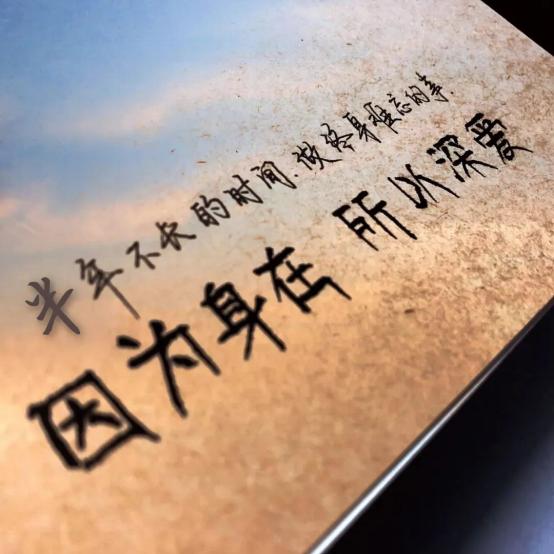 半年不长的时间.做终身难忘的事.
因为身在 所以深爱